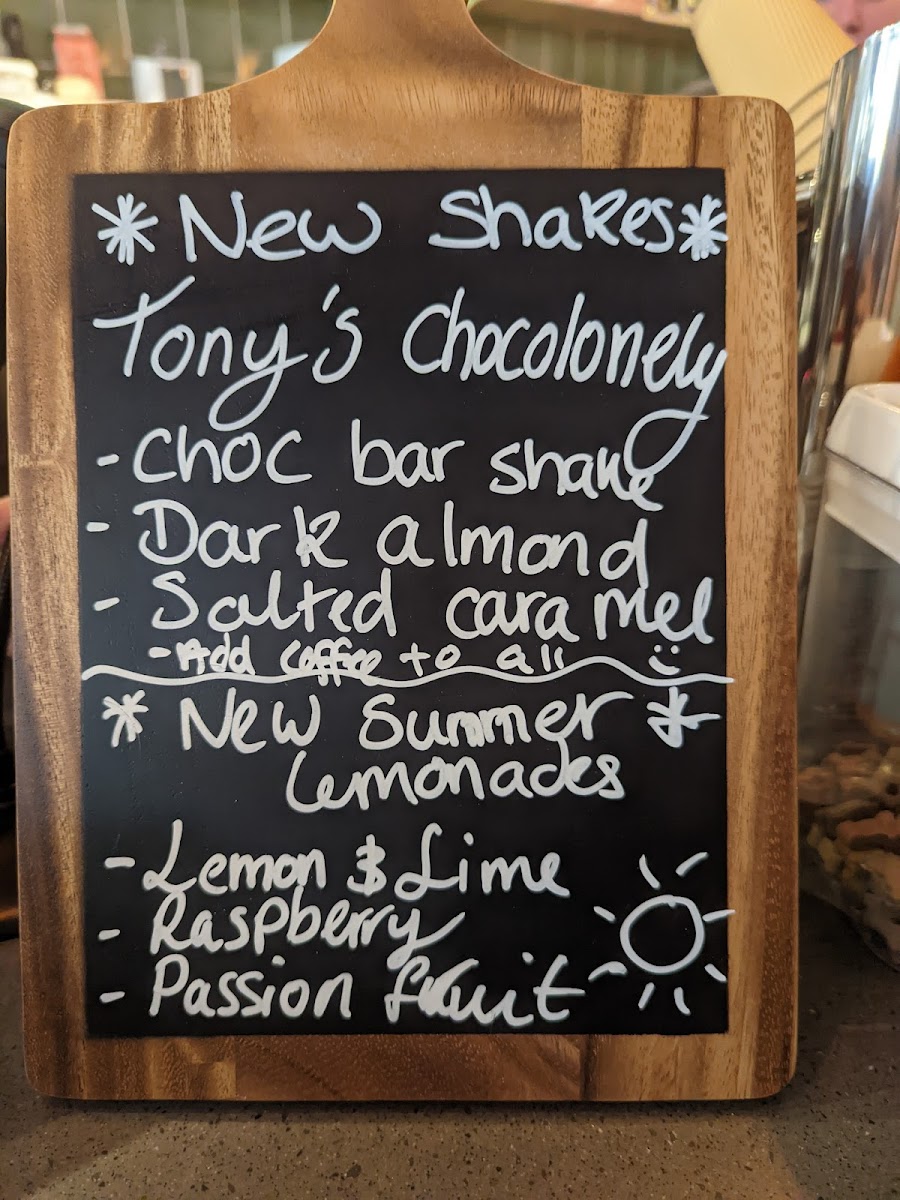 * New Shakes *
Tony's Chocolonely
- choc bar shake
- Dark almond
- Salted caramel
- Add coffee to all :)
* New Summer *
Lemonades
- Lemon & Lime
- Raspberry
- Passion fruit